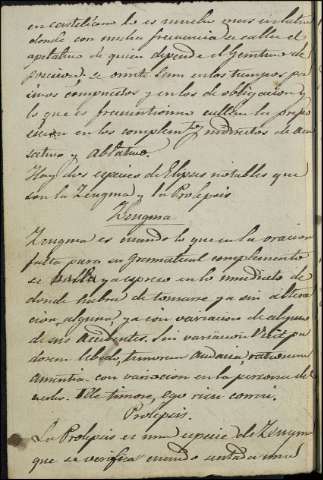 en castellano lo es mucho mas en latin
donde con mucha frecuencia se calla el
apelativo de quien depende el Genitivo de
posesion, se omite sum en los tiempos pa
sivos compuestos y en los de obligacion y
lo que es frecuentisimo callar la prepo
sicion en los complem.tos indirectos de acu
sativo y ablativo.
Hay dos especies de Elipsis notables que
son la Zeugma y la Prolepsis
Zeugma
Zeugma es cuando lo que en la oracion
falta para su gramatical complemento
se halla expreso en lo inmediato de
donde habra de tomarse ya sin altera
cion alguna, ya con variacion de alguno
de sus accidentes. Sin variacion Vicit pu
dorem libido, timorem audacia, rationem
amentia. con variacion en la persona del
verbo. Ille timore, ego risu corrui.
Prolepsis.
La Prolepsis es una especie de Zeugma
que se verifica cuando sentada una